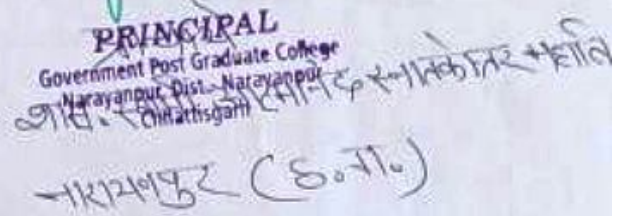 PRINCIPAL
Government Post Graduate College
Narayanpur, Dist.- Narayanpur
Chhattisgarh
शास. स्वामी आत्मानंद स्नातकोत्तर महावि
नारायणपुर (छ.ग.)